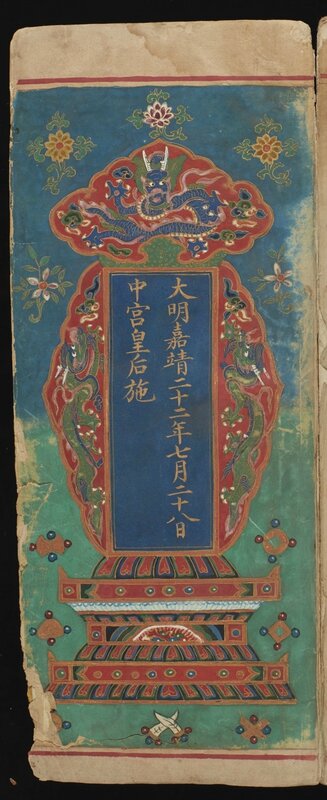 大明嘉靖二十二年七月二十八日
中宮皇后施